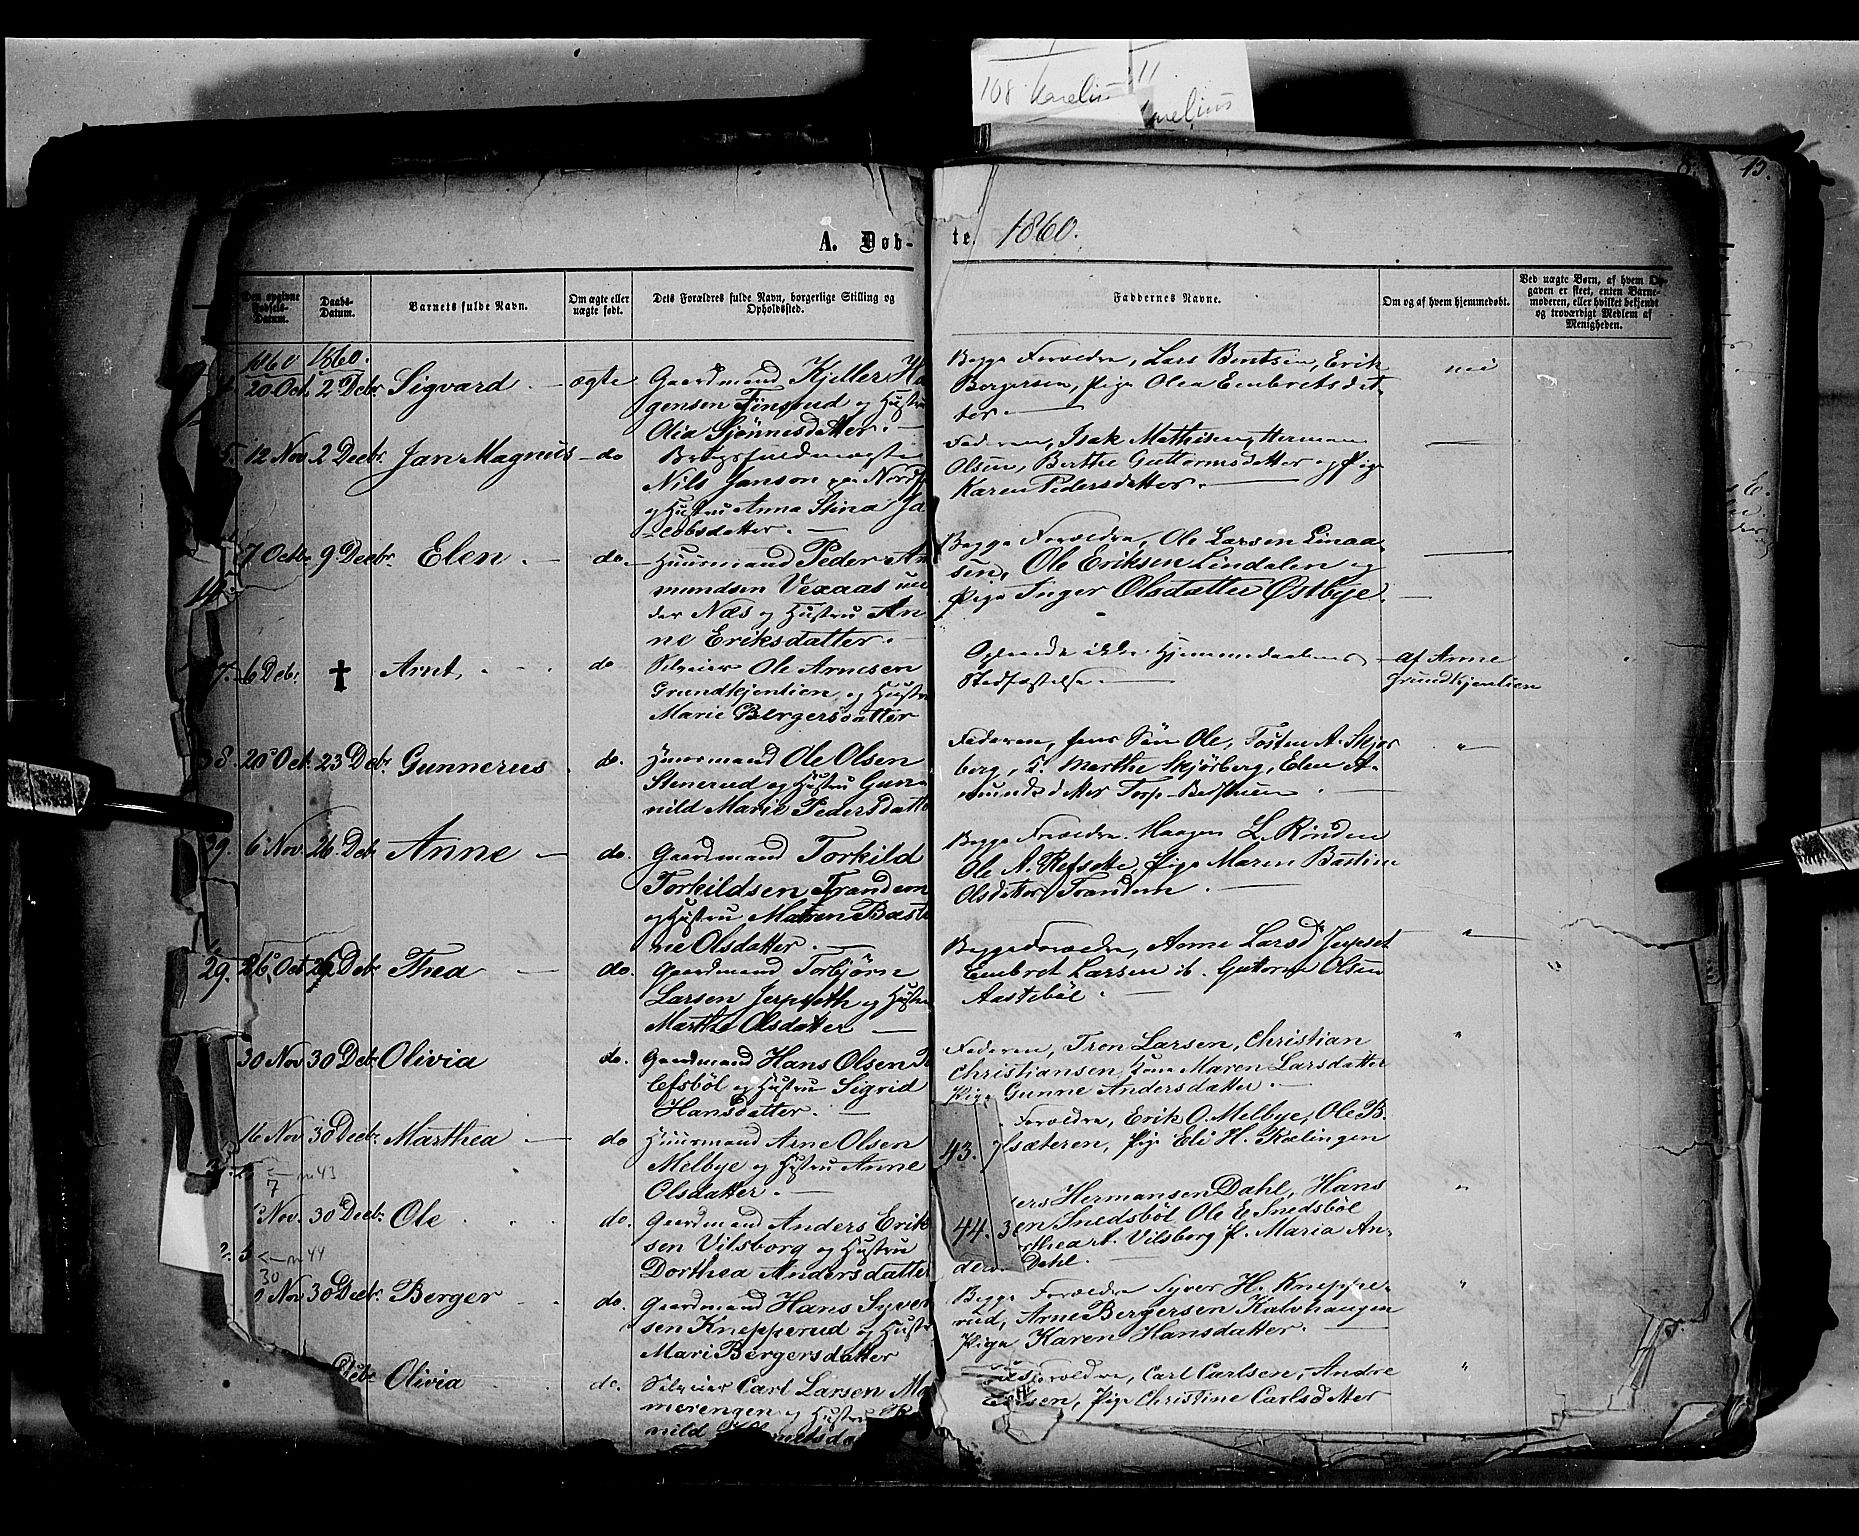 108 Karelius 11
Karelius
15.
A. Døb-
te. 1860.
Den opgivne Fødsels-Datum.
Daabs-Datum.
Barnets fulde Navn.
Om ægte eller uægte født.
Dets Forældres fulde Navn, borgerlige Stilling og Opholdssted.
Faddernes Navne.
Om og af hvem hjemmedøbt.
Ved uægte Børn, af hvem Opgaven er skeet, enten Barnemoderen, eller hvilket bekjendt og troværdigt Medlem af Menigheden.
1860 1860.
20 Oct. 2 Debr. Sigvard — ægte Gaardmand Kjeller Ha
gensen Finsrud og Hustru
Olia Gjønnesdatter. —
Begge Forældre, Lars Berntsen, Erik
Bergersen, Pige Olea Embretsdat-
ter. —
nei
5. 12 Nov 2 Decbr. Jan Magnus — do
Nils Janson
og Hustru Anna Stina Ja
cobsdatter. —
Faderen, Isak Mathisen, Herman
Olsen, Berthe Guttormsdatter og Pige
Karen Pedersdatter. —
7 Octbr. 9 Decbr. Elen — do. — Huusmand Peder Am
mundsen Vexaas un
der Næs og Hustru An
ne Eriksdatter. —
Begge Forældre, Ole Larsen Linaa-
sen, Ole Eriksen Lindalen og
Pige Inger Olsdatter Østbye. —
7. 6 Debr. † Arnt. do Ole Arnesen
Grundkjenlien og Hustru
Marie Bergersdatter
ikke Hjemmedaabens
Stadfæstelse. —
af Anne
Grundkjenlien
38. 20 Oct. 23 Debr. Gunnerus do. Huusmand Ole Olsen
Stenerud og Hustru Gun-
nild Marie Pedersdatter
Faderen, hans Søn Ole, Tosten A. Skjør
berg, K. Marthe Skjørberg, Elen A-
mundsdatter Torp
39. 6 Nov. 26. Debr Anne — do. Gaardmand Torkild
Torkildsen Trandem
og Hustru Maren Basti
ne Olsdatter. —
Begge Forældre. Haagen L. Rinden
Ole A. Refsette Pige Maren Bastine
Olsdatter Trandem. —
29. 26 Oct 26 Debr Thea — do. Gaardmand Torbjørn
Larsen Jerpseth og Hustru
Marthe Olsdatter —
Begge Forældre, Anne Larsd. Jerpset
Embret Larsen ib. Guttorm Olsen
Aastebøl. —
30 Nov 30 Debr Olivia do. Gaardmand Hans Olsen
Efsbøl og Hustru Sigrid
Hansdatter. —
Faderen, Tron Larsen, Christian
Christiansen, Kone Maren Larsdatter
Pige Gunne Andersdatter. —
16 Nov 30 Decbr. Marthea — do Huusmand Arne Olsen
Melbye og Hustru Anne
Olsdatter. —
Forældre, Erik O. Melbye, Ole B.
43. sæteren, Pige Eli H. Kœlingen
← nr 43
7
Nov. 30 Decbr. Ole do. Gaardmand Anders Erik
sen Vilsborg og Hustru
Dorthea Andersdatter
Hermansen Dahl, Hans
44. 3 en Snedsbøl, Ole E. Snedsbøl
thea A. Vilsberg P. Maria An-
ders Dahl. —
← nr 44
30
Nov 30 Decbr. Berger do. Gaardmand Hans Syver
sen Knepperud og Hustru
Mari Bergersdatter
Begge Forældre Syver H. Kneppe-
rud, Arne Bergersen Kalvhaugen
Pige Karen Hansdatter. —
Debr Olivia do. Carl Larsen Ma
merengen og Hustru
nild
Forældre, Carl Carlsen, Andre
sen, Pige Christine Carlsdatter